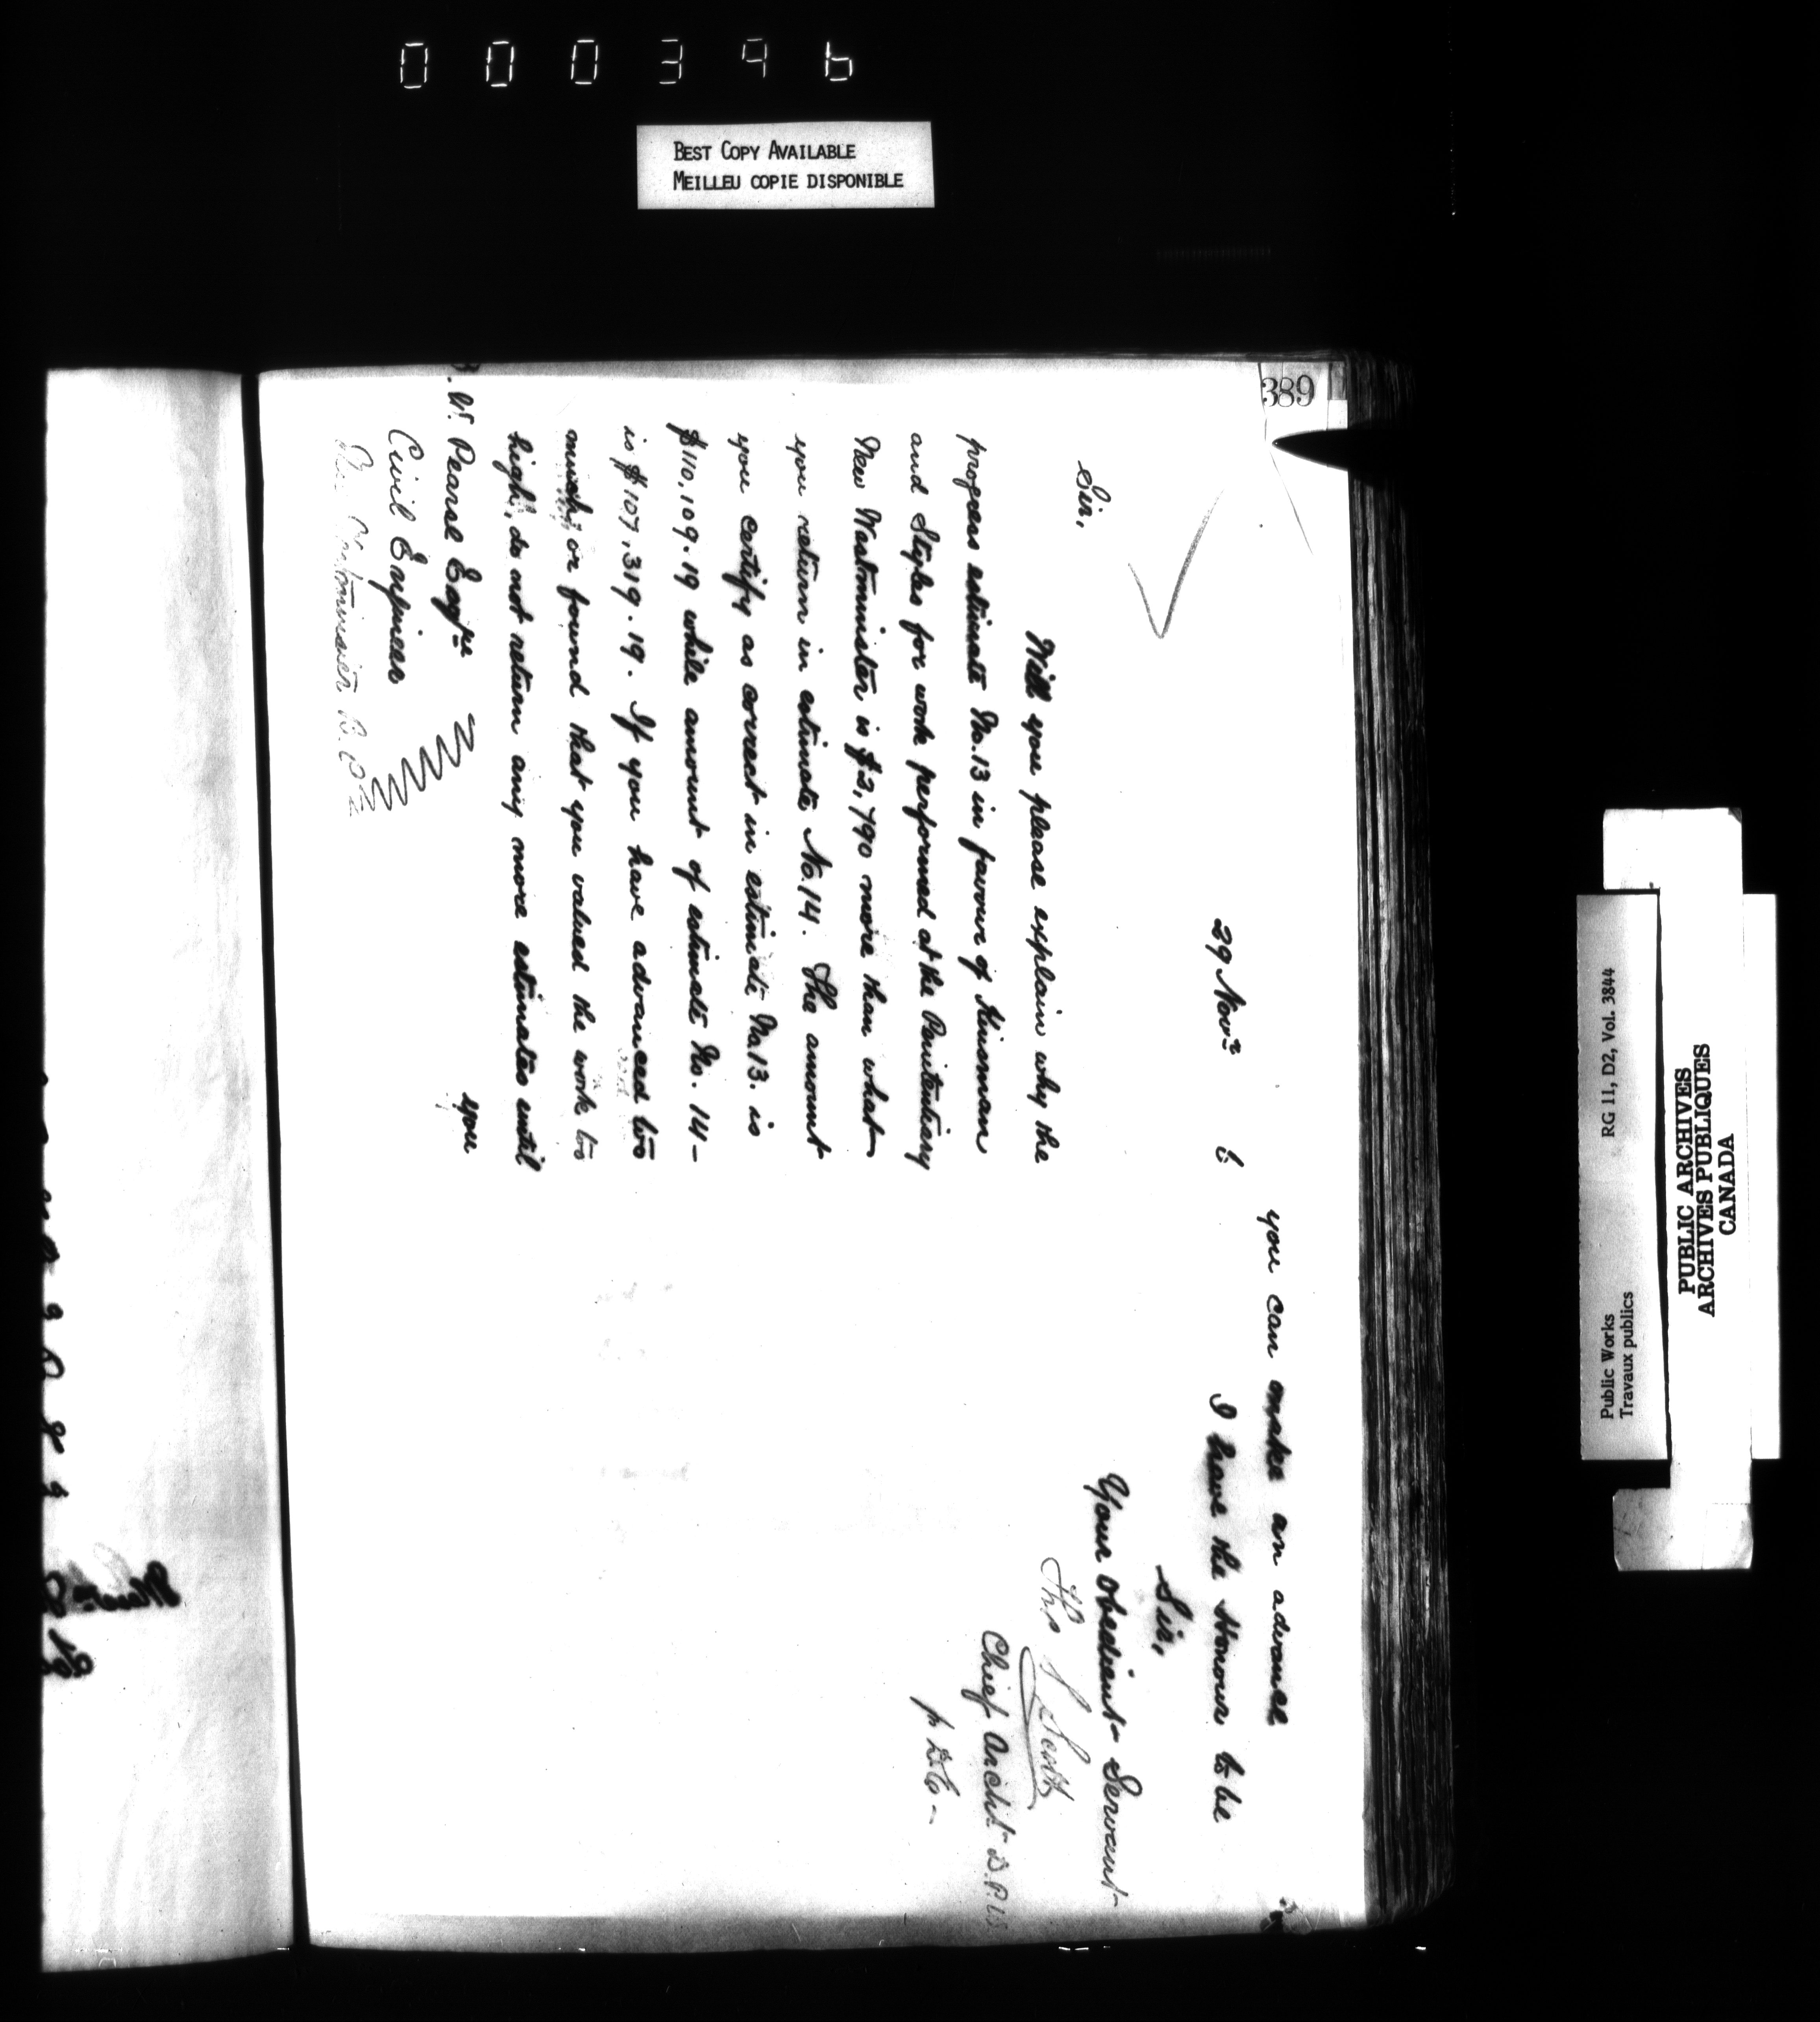 000396
BEST COPY AVAILABLE
MEILLEU COPIE DISPONIBLE
389
29 Nov.r 6
Sir,
Will you please explain why the
progress estimate No. 13 in favour of Kinsman
and Styles for work performed at the Penitentiary
New Westminister is $2,790 more than what
you return in estimate No. 14. The amount
you certify as correct in estimate No 13. is
$110,109.19 while amount of estimate No. 14 –
is $107,319.19. If you have advanced too
much, or found that you valued the work too
high, do not return any more estimates until
you
B. W. Pearse Esqre
Civil Engineer
New Westminster B. C.
you can make an advance
I have the Honour to be
Sir,
Your Obedient Servant
Thos S Scott
Chief Archt D.P.W
Public Works
Travaux publics
RG 11, D2, Vol. 3844
PUBLIC ARCHIVES
ARCHIVES PUBLIQUES
CANADA